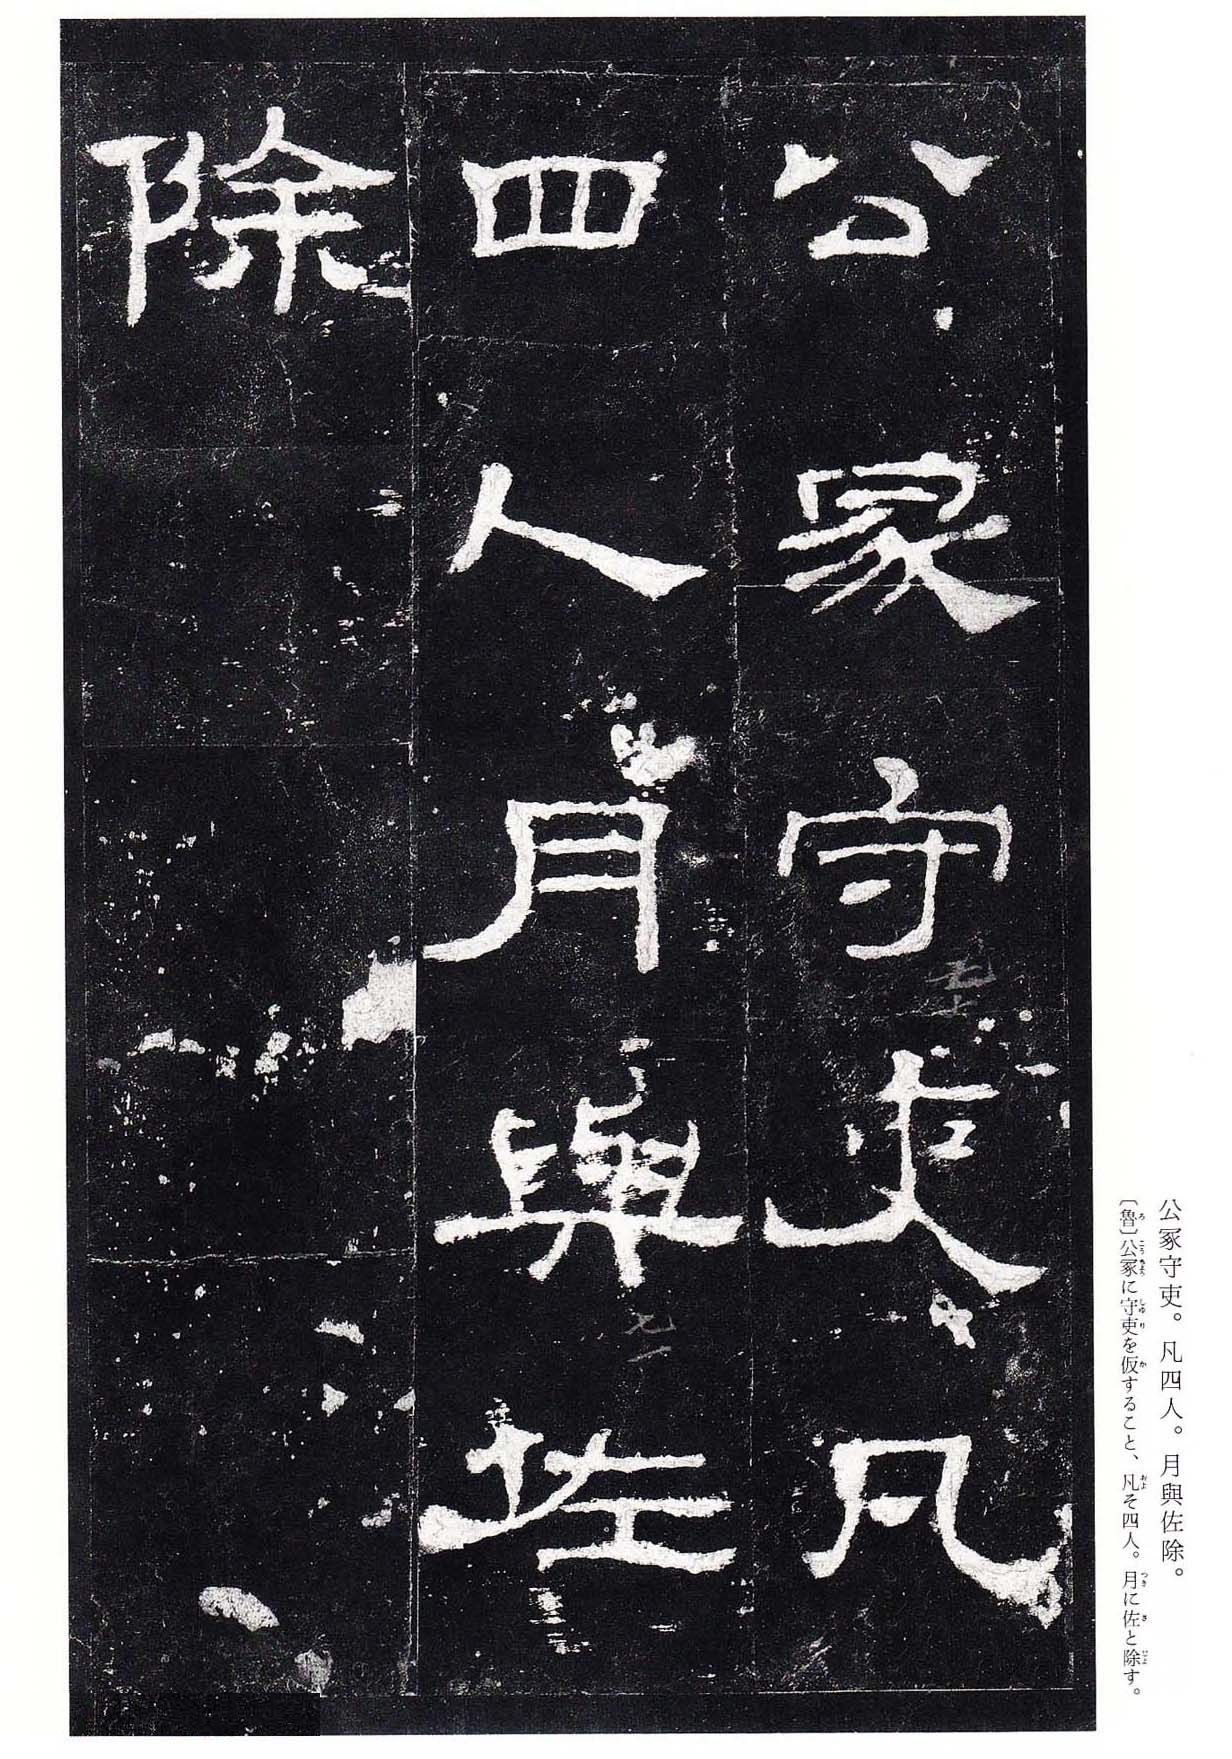 公冢守吏。凡四人。月與佐除。
〔魯〕公冢に守吏を仮すること、凡そ四人。月に佐と除す。
公冢守吏凡
四人月與佐
除